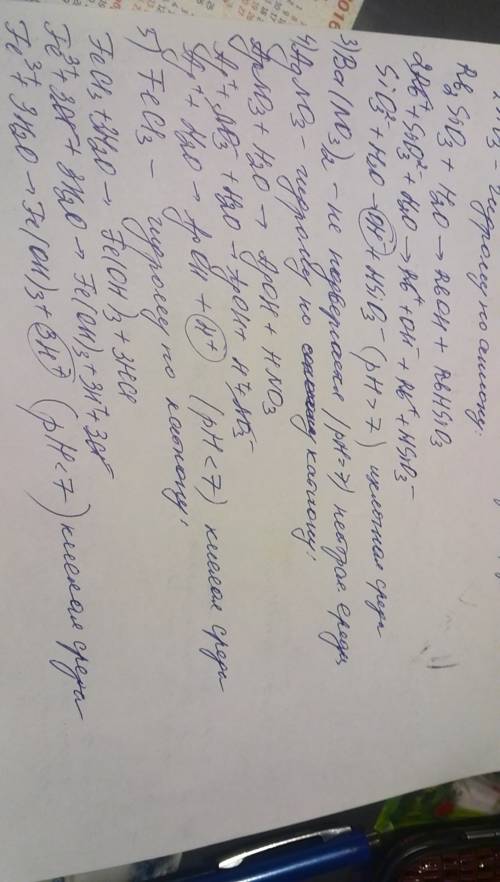 гидролиз по аниону.
Rb₂SiO₃ + H₂O → RbOH + RbHSiO₃
2Rb⁺ + SiO₃²⁻ + H₂O → Rb⁺ + OH⁻ + Rb⁺ + HSiO₃⁻
SiO₃²⁻ + H₂O → OH⁻ + HSiO₃⁻ (pH > 7) щелочная среда
3) Ba(NO₃)₂ – не подвергается (pH=7) нейтрал. среда
4) AgNO₃ – гидролиз по катиону;
AgNO₃ + H₂O → AgOH + HNO₃
Ag⁺ + NO₃⁻ + H₂O → AgOH + H⁺ + NO₃⁻
Ag⁺ + H₂O → AgOH + H⁺ (pH < 7) кислая среда
5) FeCl₃ – гидролиз по катиону;
FeCl₃ + 3H₂O → Fe(OH)₃ + 3HCl
Fe³⁺ + 3Cl⁻ + 3H₂O → Fe(OH)₃ + 3H⁺ + 3Cl⁻
Fe³⁺ + 3H₂O → Fe(OH)₃ + 3H⁺ (pH < 7) кислая среда